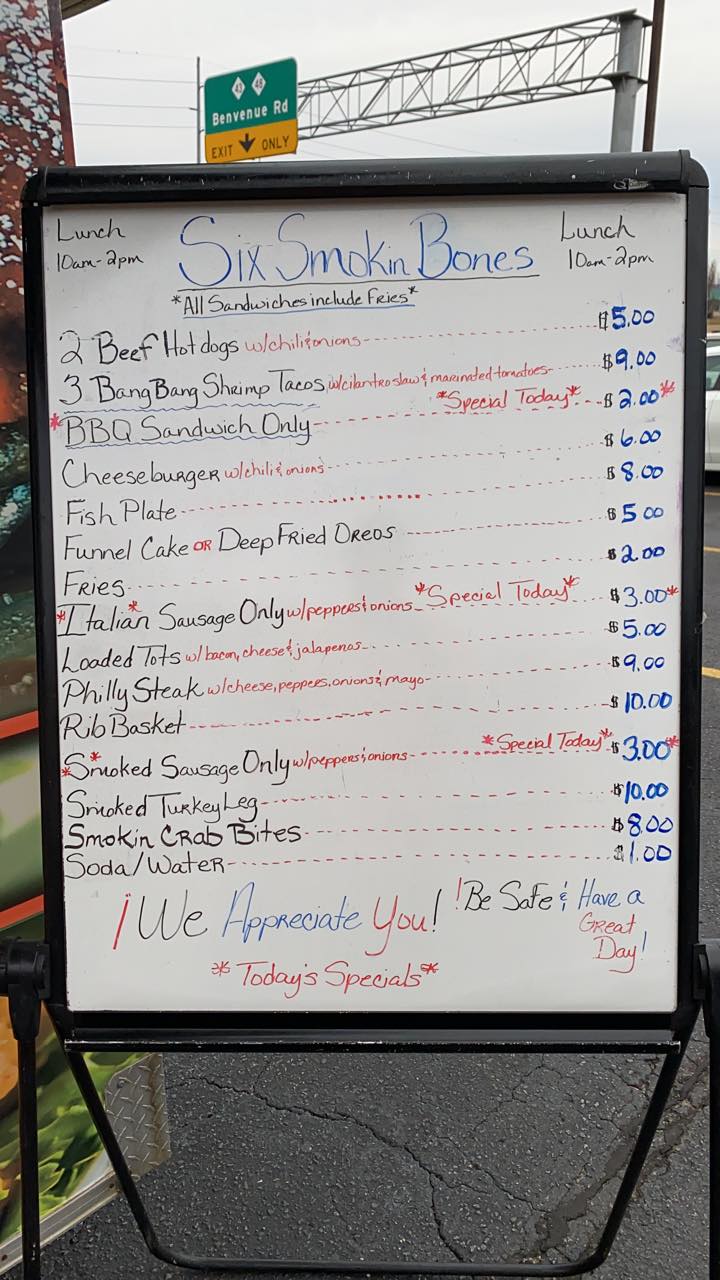 43 48
Benvenue Rd
EXIT ONLY
Lunch
10am-2pm
Six Smokin Bones
Lunch
10am-2pm
*All Sandwiches include Fries*
2 Beef Hotdogs w/chili & onions $5.00
3 Bang Bang Shrimp Tacos w/cilantro slaw & marinated tomatoes $9.00
*BBQ Sandwich Only *Special Today* $2.00*
Cheeseburger w/chili & onions $6.00
Fish Plate $8.00
Funnel Cake OR Deep Fried Oreos $5.00
Fries $2.00
*Italian* Sausage Only w/peppers & onions *Special Today* $3.00*
Loaded Tots w/bacon, cheese & jalapenos $5.00
Philly Steak w/cheese, peppers, onions & mayo $9.00
Rib Basket $10.00
*Smoked* Sausage Only w/peppers & onions *Special Today* $3.00*
Smoked Turkey Leg $10.00
Smokin Crab Bites $8.00
Soda/Water $1.00
¡We Appreciate You!
!Be Safe & Have a
Great
Day!
*Today's Specials*